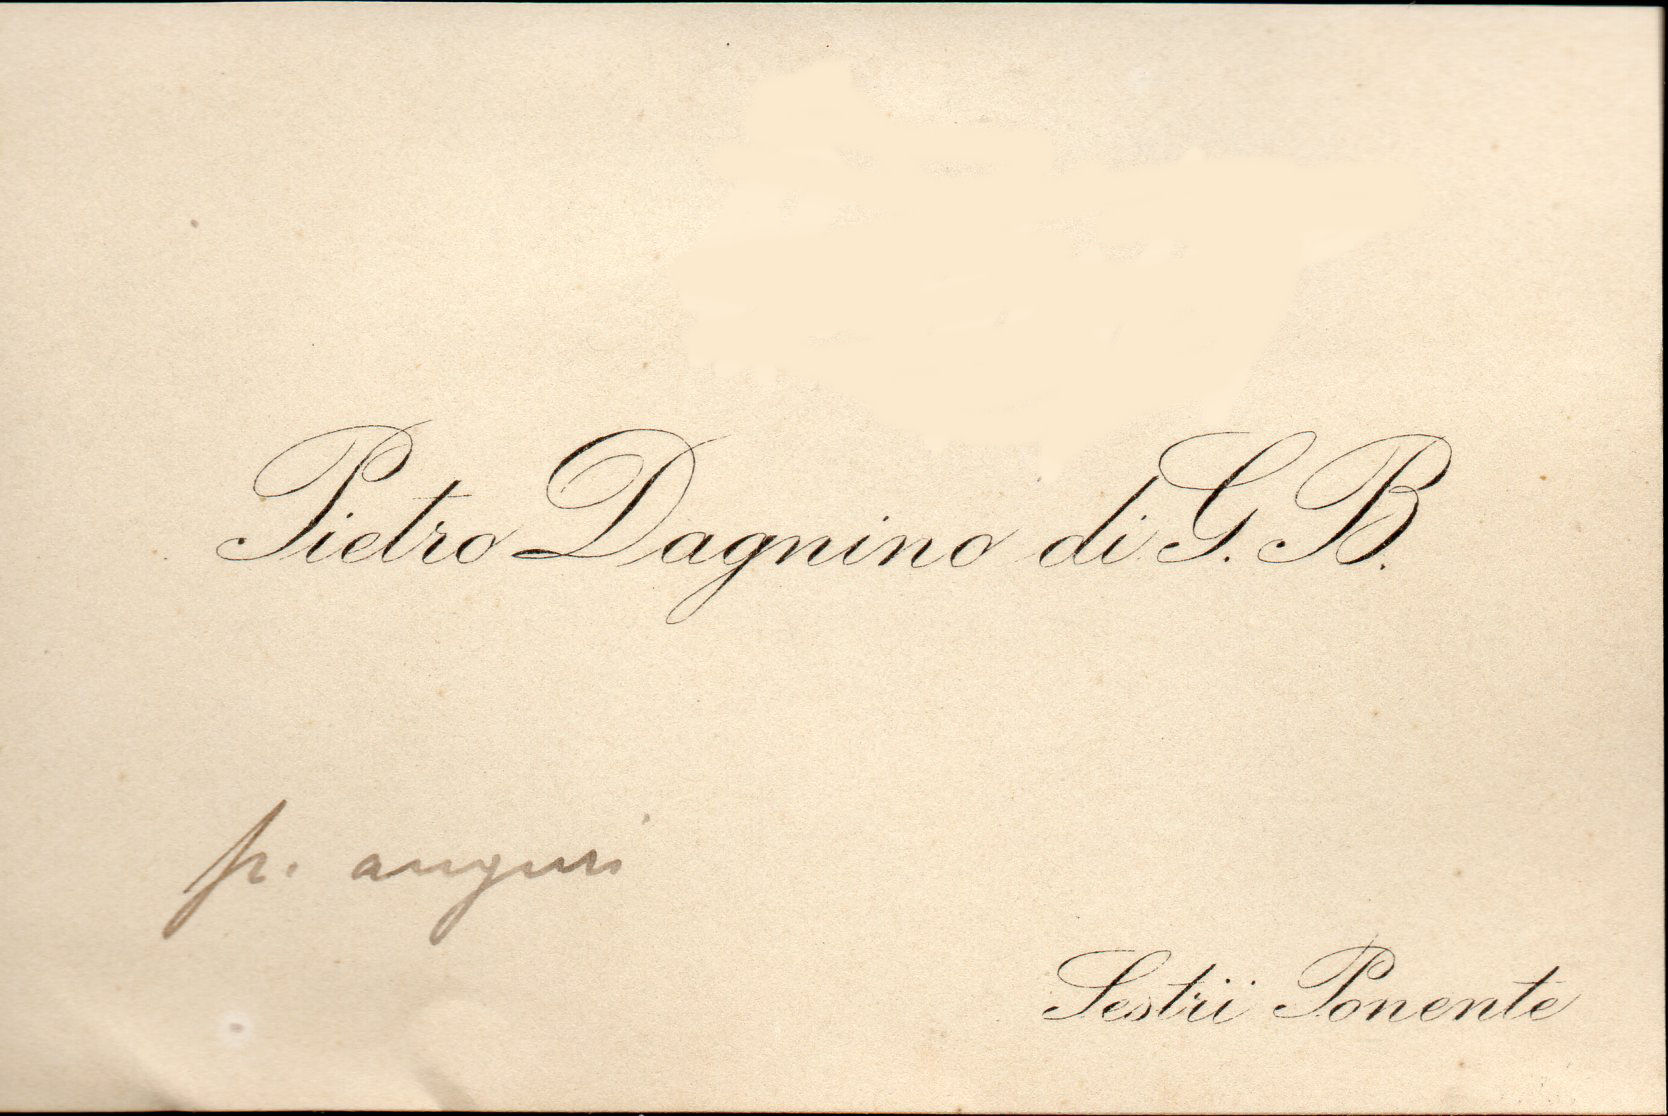 Pietro Dagnino di G. B.
p. auguri
Sestri Ponente